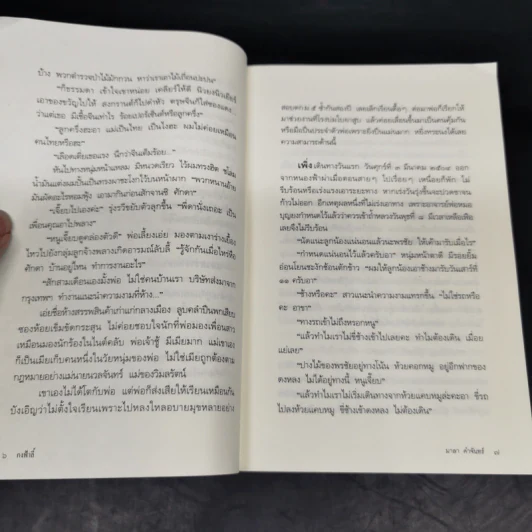 บ้าง พวกตำรวจป่าไม้มักกวน หาว่าเราเอาไม้เถื่อนปะปน”
“ก็ธรรมดา เข้าใจเขาหน่อย เคลียร์ให้ดี
เอาของขวัญไปให้ สงกรานต์ก็ไปดำหัว ตรุษจีนก็ใส่ซองแดง
ว่าแต่เธอ มีเชื้อจีนเท่าไร ร้อยเปอร์เซ็นต์หรือลูกครึ่ง”
“ลูกครึ่งฮะอา แม่เป็นไทย เป็นไงฮะ ผมไม่ค่อยเหมือน
คนไทยหรือฮะ”
“เลือดเตี่ยเธอแรง นึกว่าจีนเต็มร้อย...”
หันไปทางหนุ่มหน้าแหลม มีหนวดเรียว ไว้ผมทรงฮิต
น้ำมันแต่งผมเป็นปั้นเป็นทรงมาชะโงกไว้บนหน้าผาก “พวกหนามถ้าย
มันผัดอะไรหอมฟุ้ง เอามากินก่อนสักจานซิ ศักดา”
“เจี๊ยบไปเองค่ะ” รุ่งรวีขยับตัวลุกขึ้น “พี่ดานั่งเถอะ เป็น
เพื่อนคุณอาไปพลาง”
“หนูเจี๊ยบดูคล่องตัวดี” พ่อเลี้ยงเอ่ย มองตามเงาร่างเอื้อง
ไหวไปยังกลุ่มลูกจ้างพลางเกิดอารมณ์ลับลี้ “รู้จักกันเมื่อไหร่หือ
ศักดา บ้านอยู่ไหน ทำการงานอะไร”
“สักสามเดือนเองมั้งพ่อ ไม่ใช่คนบ้านเรา บริษัทส่งมาจาก
กรุงเทพฯ ทำงานแนะนำความงามที่ห้าง...”
เอ่ยชื่อห้างสรรพสินค้าเก่าแก่กลางเมือง ลูบคลำปืนพกเสียบ
ซองห้อยเข็มขัดกระสุน ไม่ค่อยชอบใจนักที่พ่อมองเพื่อนสาว
เหมือนมองนักร้องในไนต์คลับ พ่อเจ้าชู้ มีเมียมาก แม่เขาเอง
ก็เป็นเมียเก็บคนหนึ่งในวัยหนุ่มของพ่อ ไม่ใช่เมียถูกต้องตาม
กฎหมายอย่างแม่นายนวลจันทร์ แม่ของวิมลรัตน์
เขาเองไม่ได้โตกับพ่อ แต่พ่อก็ส่งเสียให้เรียนเหมือนกัน
บังเอิญว่าไม่ตั้งใจเรียนเพราะไปหลงใหลอบายมุขหลายอย่าง
๖ กงฟีกลี้
สอบตก ม.๕ ซ้ำกันสองปี เลยเลิกเรียนดื้อๆ ต่อมาพ่อก็เรียกให้
มาช่วยงานที่โรงบ่มใบยาสูบ แล้วค่อยเลื่อนขึ้นมาเป็นคนคุ้มกัน
หรือมือปืนประจำตัวพ่อเพราะยิงปืนแม่นมาก หยิ่งทระนงได้เลย
ความสามารถด้านนี้
เพิ่งเดินทางวันแรก วันศุกร์ที่ ๓ มีนาคม ๒๕๐๔ ออกจาก
หนองเฟ้าฝ่าเมื่อตอนสายๆ ไปเรื่อยๆ เหนื่อยก็พัก ไม่
รีบร้อนหรือเร่งแรงเอาระยะทาง หากเร่งวันรุ่งขึ้นจะปวดขาจน
ก้าวไม่ออก อีกเหตุผลหนึ่งที่ไม่เร่งเดินทาง เพราะอาจารย์พ่อหมอ
บุญยงกำหนดไว้แล้วว่าควรเข้าถ้ำหลวงวันพุธที่ ๘ มีเวลาเหลือเฟือ
เลยจึงไม่รีบร้อน
“นัดแนะลูกน้องแน่นอนแล้วนะพรชัย ให้เค้ามารับเมื่อไร”
“กำหนดแน่นอนไว้แล้วครับอา” หนุ่มหน้าตาดี มีรอยยิ้ม
อ่อนโยนชะงักช้อนตักข้าว “ผมให้ลูกน้องเอาช้างมารับวันเสาร์ที่
๑๑ ครับอา”
“ช้างหรือคะ” สาวแนะนำความงามแทรกขึ้น “ไม่ใช่รถหรือ
คะ อาขา”
“ทางรถเข้าไม่ถึงหรอกหนู”
“แล้วทำไมเราไม่ขี่ช้างเข้าไปเลยคะ ทำไมต้องเดิน เมื่อย
แย่เลย”
“ปางไม้ของพรชัยอยู่ทางโน้น ห้วยคอกหมู อยู่อีกฟากของ
ดงหลง ไม่ได้อยู่ทางนี้ หนูเจี๊ยบ”
“แล้วทำไมเราไม่เริ่มเดินทางจากห้วยแคบหมูล่ะคะอา ขี่รถ
ไปลงห้วยแคบหมู ขี่ช้างเข้าดงหลง ไม่ต้องเดิน”
มาลา คำจันทร์ ๗